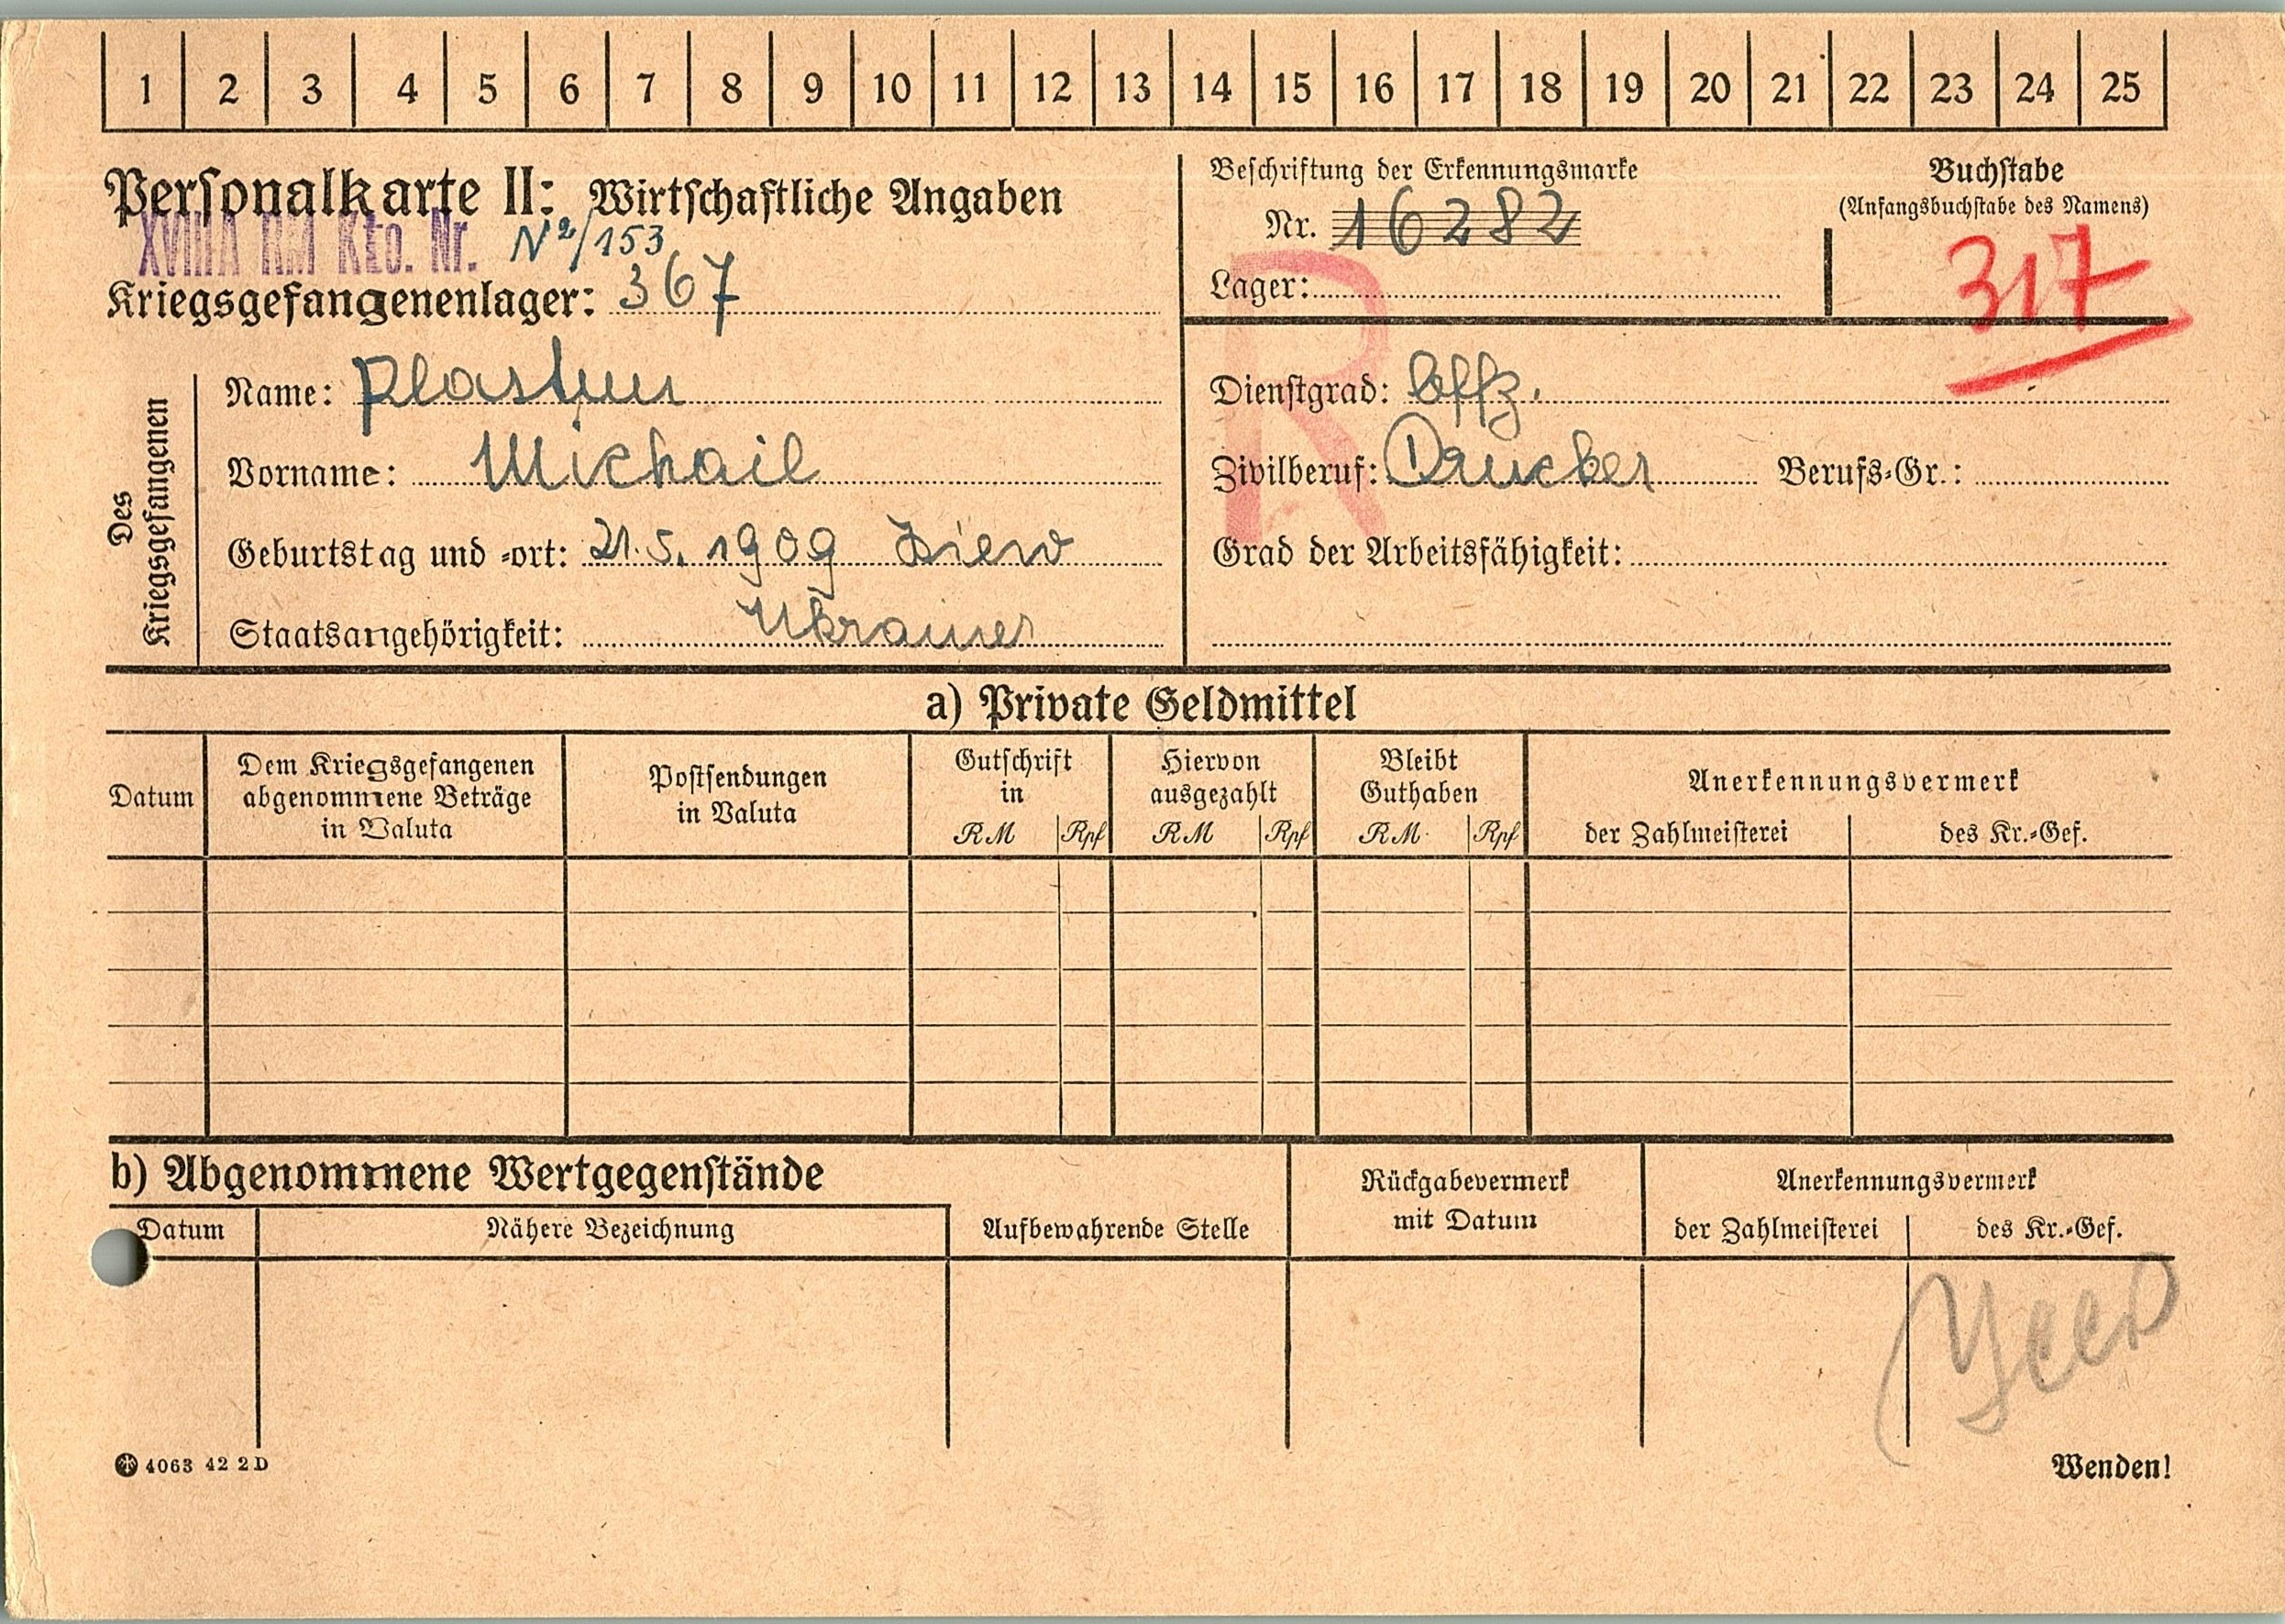 1 2 3 4 5 6 7 8 9 10 11 12 13 14 15 16 17 18 19 20 21 22 23 24 25
Personalkarte II: Wirtschaftliche Angaben
XVIII A RM Kto. Nr. N2/153
Kriegsgefangenenlager: 367
Beschriftung der Erkennungsmarke
Nr. 16282
Lager:
Buchstabe
(Anfangsbuchstabe des Namens)
317
R
Des
Kriegsgefangenen
Name: Plastun
Vorname: Michail
Geburtstag und -ort: 21.5.1909 Kiew
Staatsangehörigkeit: Ukrainer
Dienstgrad: Offz.
Zivilberuf: Drucker Berufs-Gr.:
Grad der Arbeitsfähigkeit:
a) Private Geldmittel
Datum
Dem Kriegsgefangenen
abgenommene Beträge
in Valuta
Postsendungen
in Valuta
Gutschrift
in
RM Rpf
Hiervon
ausgezahlt
RM Rpf
Bleibt
Guthaben
RM Rpf
Anerkennungsvermerk
der Zahlmeisterei des Kr.-Gef.
b) Abgenommene Wertgegenstände
Datum Nähere Bezeichnung Aufbewahrende Stelle
Rückgabevermerk
mit Datum
Anerkennungsvermerk
der Zahlmeisterei des Kr.-Gef.
4063 42 2 D
Wenden!